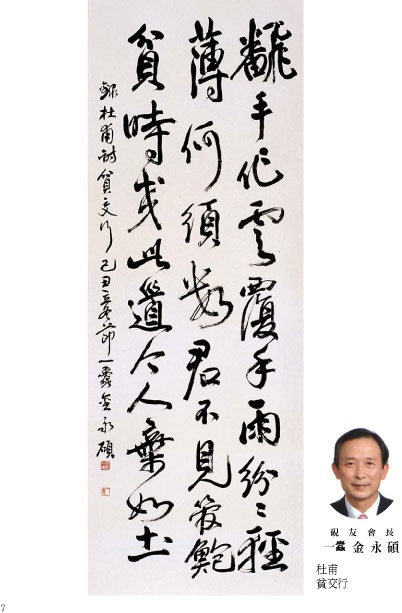 飜手作雲覆手雨紛〻輕
薄何須數君不見管鮑
貧時交此道今人棄如土
錄杜甫詩貧交行 己丑 節 一蠹金永碩
硯友會長
一蠹 金永碩
杜甫
貧交行
7